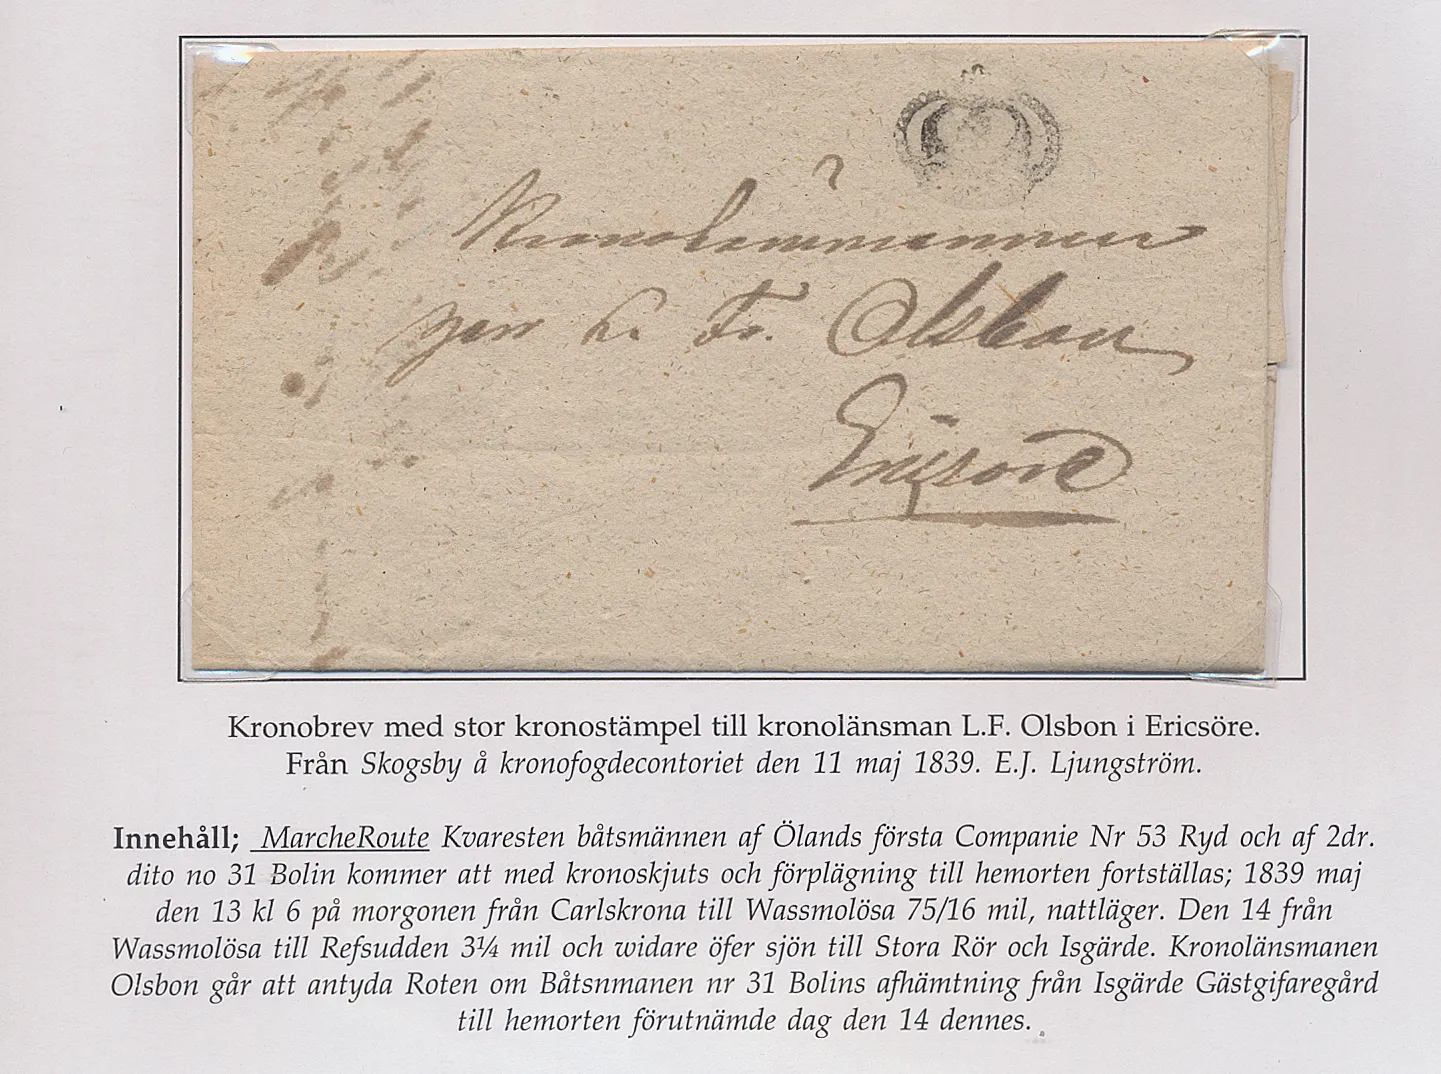 Kronolänsmannen
herr L. Fr. Olsbon
Ericsöre
Kronobrev med stor kronostämpel till kronolänsman L.F. Olsbon i Ericsöre.
Från Skogsby å kronofogdecontoriet den 11 maj 1839. E.J. Ljungström.
Innehåll; MarcheRoute Kvaresten båtsmännen af Ölands första Companie Nr 53 Ryd och af 2dr.
dito no 31 Bolin kommer att med kronoskjuts och förplägning till hemorten fortställas; 1839 maj
den 13 kl 6 på morgonen från Carlskrona till Wassmolösa 75/16 mil, nattläger. Den 14 från
Wassmolösa till Refsudden 3¼ mil och widare öfer sjön till Stora Rör och Isgärde. Kronolänsmanen
Olsbon går att antyda Roten om Båtsnmanen nr 31 Bolins afhämtning från Isgärde Gästgifaregård
till hemorten förutnämde dag den 14 dennes.